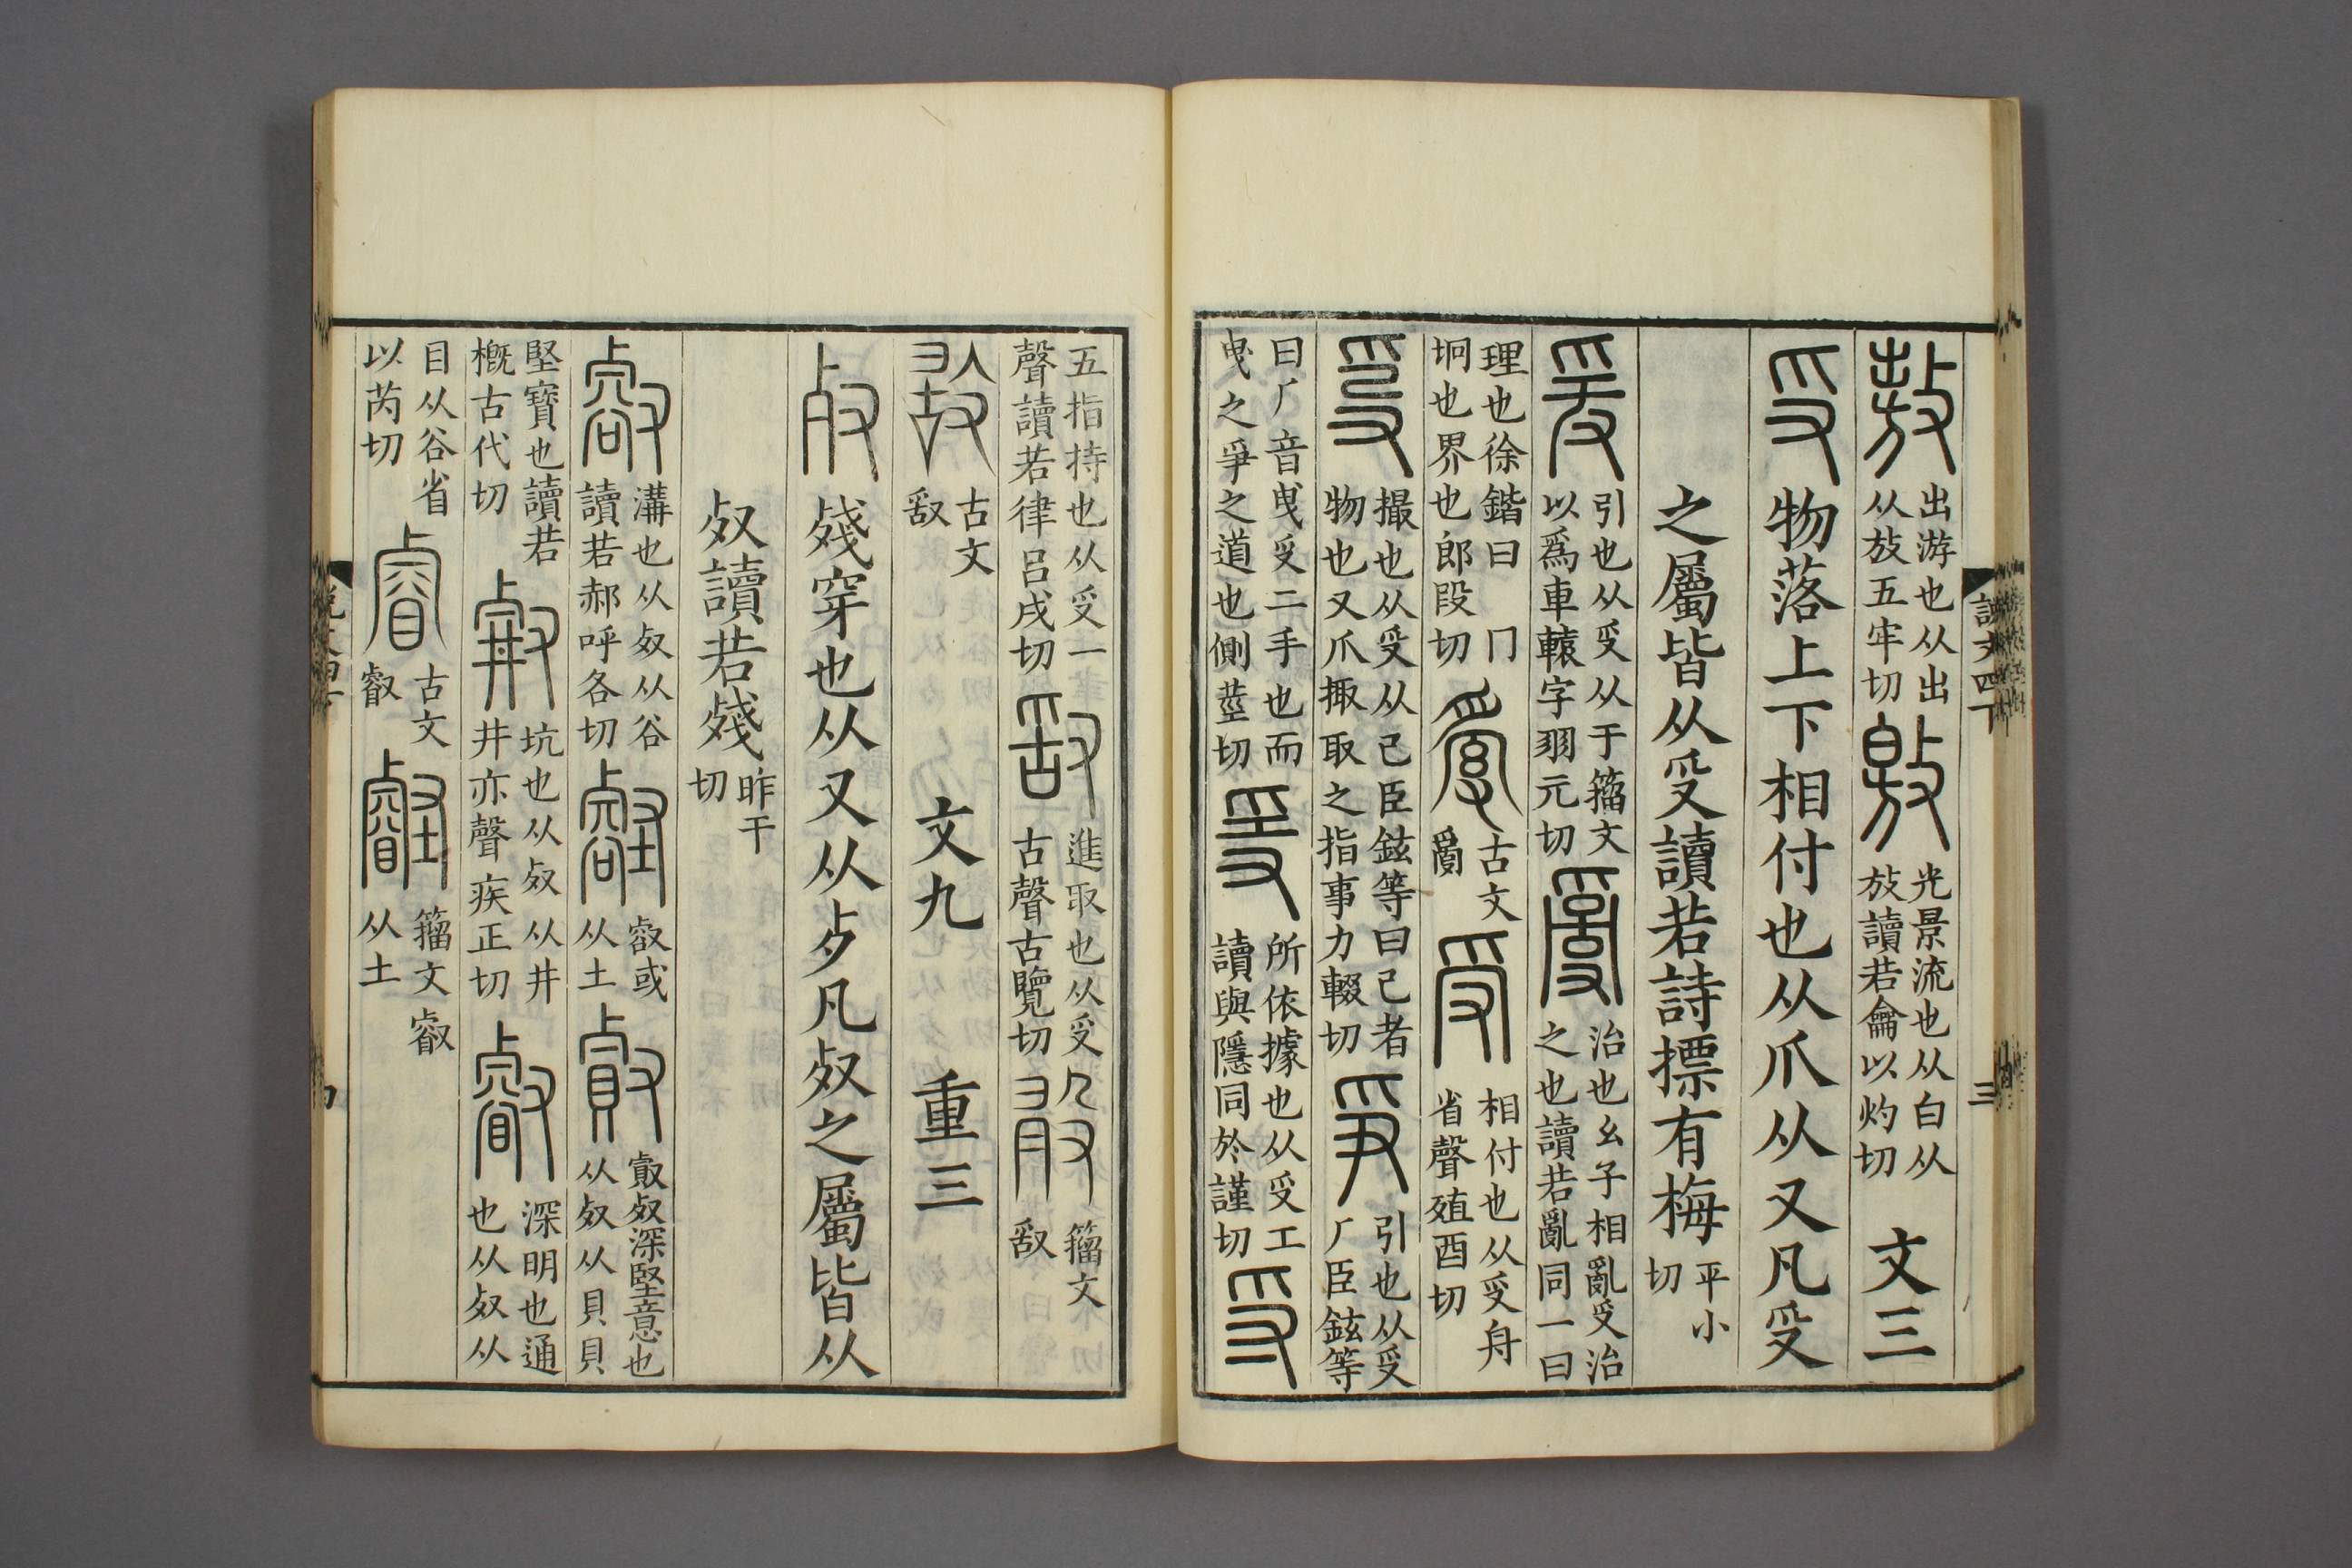 說文四下 三
敖出游也从出从放五牢切敫光景流也从白从放讀若龠以灼切文三
𠬪物落上下相付也从爪从又凡𠬪
之屬皆从𠬪讀若詩摽有梅平小切
爰引也从𠬪从于籀文以爲車轅字羽元切𤔔治也幺子相亂𠬪治之也讀若亂同一曰
理也徐鍇曰冂坰也界也郎段切古文𤔔受相付也从𠬪舟省聲殖酉切
撮也从𠬪从己臣鉉等曰己者物也又爪掫取之指事力輟切爭引也从𠬪𠂆臣鉉等
曰𠂆音曳𠬪二手也而曳之爭之道也側莖切𤔌所依據也从𠬪工讀與隱同於謹切寽
五指持也从𠬪一聲讀若律呂戌切𠭖進取也从𠬪古聲古覽切籀文𠭖
古文𠭖文九重三
𣦻殘穿也从又从歺凡𣦻之屬皆从
𣦻讀若殘昨干切
㕡溝也从𣦻从谷讀若郝呼各切壑㕡或从土𣦻深堅意也从𣦻从貝貝
堅寶也讀若概古代切坑也从𣦻从井井亦聲疾正切叡深明也通也从𣦻从
目从谷省以芮切睿古文叡壡籀文叡从土